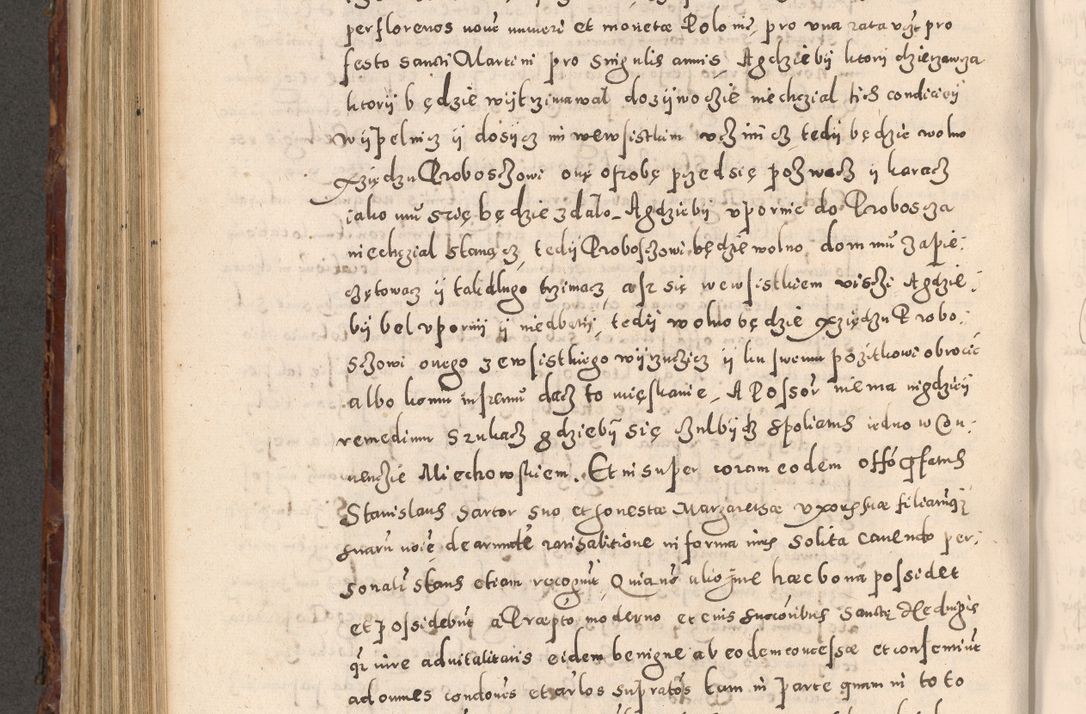 per florenos noue numeri et monetæ Poloniæ, pro vna rata vtzt pro
festo Sancti Martini pro singulis annis, A gdzieby ktory dzierzawcza
ktory będzie wytrzimawal dozywocie nie chcial tich condiciey
wypelnicz y dosycz im we wsistkim vczinicz tedy będzie wolno
Xziędzu Proboszczowi onę osobę przed się pozwacz y karacz
iako mu się będzie zdalo, A gdzieby vpornie do Probosza
nie chczial stanącz, tedy Proboszczowi będzie wolno dom mu zapie-
czętowacz y tak dlugo trzimacz aże się we wsistkiem viszci A gdzie-
by bel vporny y niedbaly, tedy wolno będzie Xziędzu Probo-
szczowi onego ze wsistkiego wyrzuczicz y ku swemu pozitkowi obrocic
albo komu inszemu dacz to mięskanie, A Possor niema nigdziey
remedium szukacz gdzieby się czulbydz spoliatus iedno w Con-
uenczie Miechowskiem. Et insuper coram eodem offo pfatus
Stanislaus Sartor suo et honestæ Margaretæ vxoris suæ filiarumq
suarum noie de rati habitione in forma iuris solita cauendo per-
sonalr stans etiam recognit, Quia nullo iure hæc bona possidet
et possidebunt a Præpto moderno et eius succoribus Sanctæ Hedwigis
qr iure aduitalitatis eidem benigne ab eodem concessæ et consemiut
ad omnes condones et arlos supratos tam in parte quam in toto